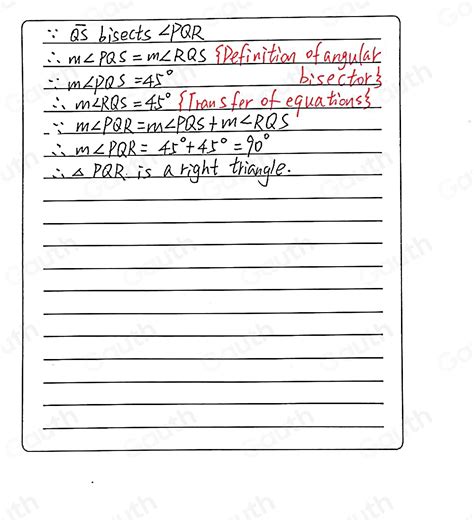 ∵ Q̅S̅ bisects ∠PQR
∴ m∠PQS = m∠RQS {Definition of angular bisector}
∵ m∠PQS = 45°
∴ m∠RQS = 45° {Transfer of equations}
∵ m∠PQR = m∠PQS + m∠RQS
∴ m∠PQR = 45° + 45° = 90°
∴ △ PQR is a right triangle.
Gauth